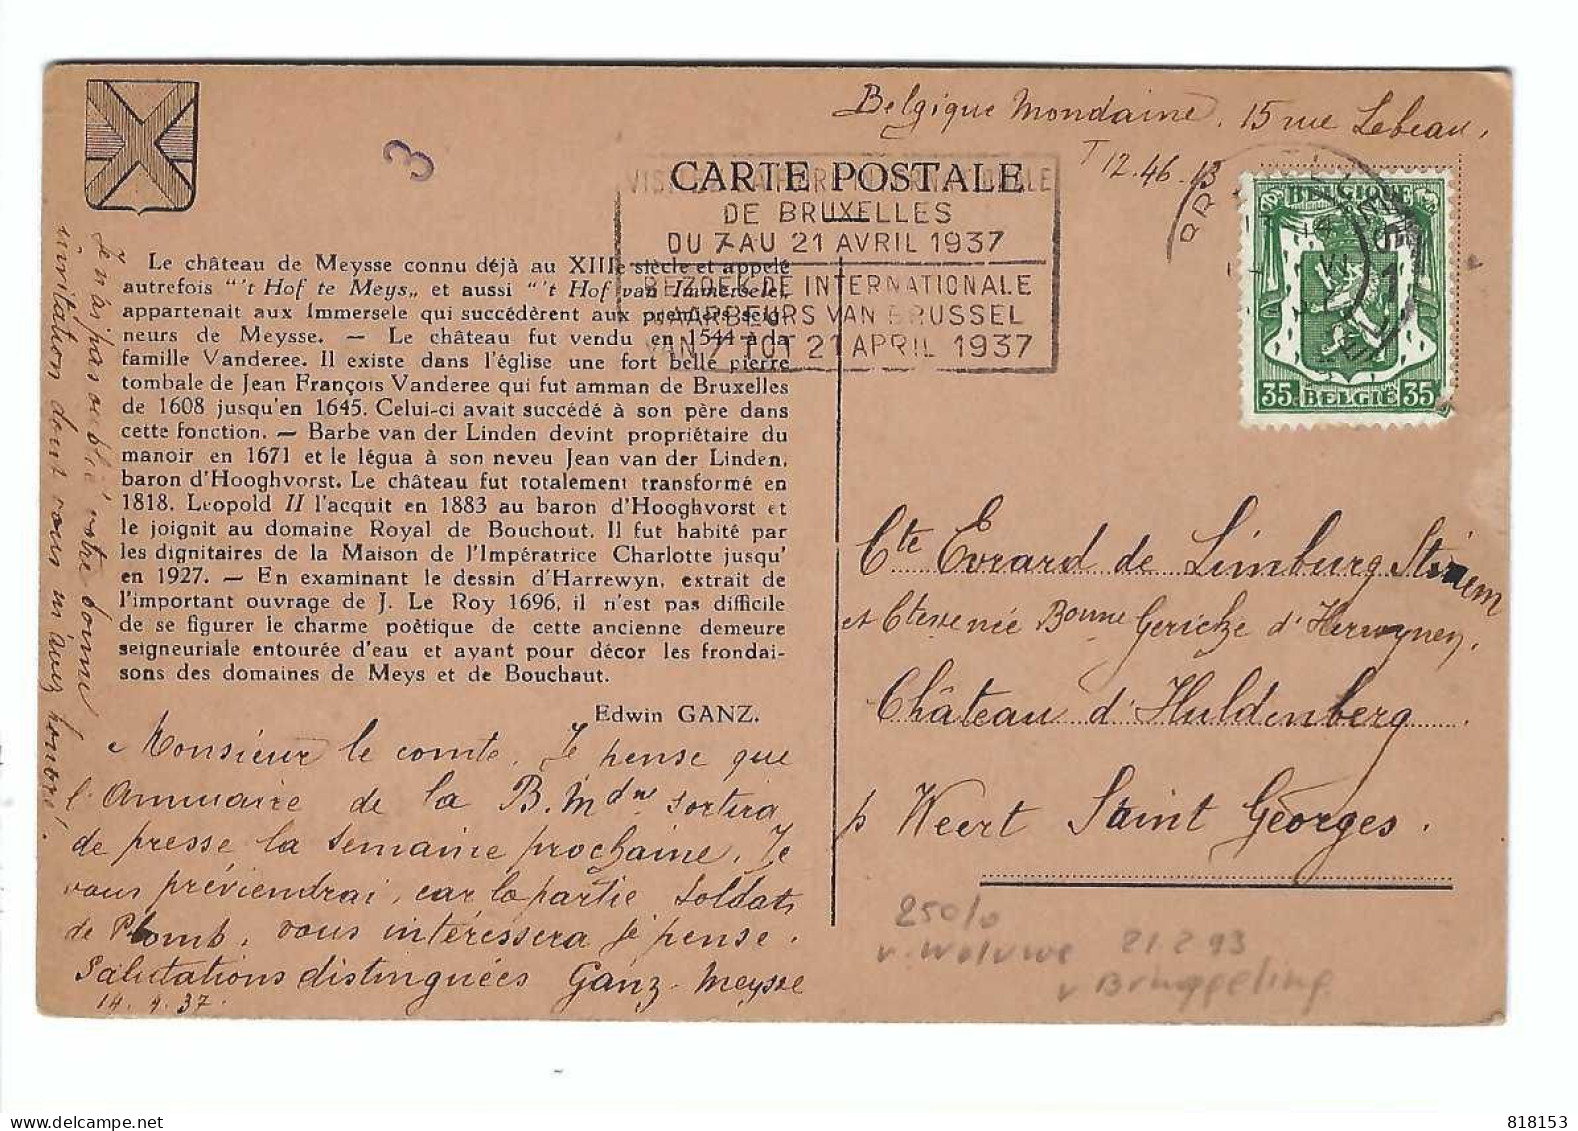 Belgique Mondaine. 15 rue Lebeau,
T 12.46.13
3
CARTE POSTALE
DE BRUXELLES
DU 7 AU 21 AVRIL 1937
BEZOEK DE INTERNATIONALE
JAARBEURS VAN BRUSSEL
VAN 7 TOT 21 APRIL 1937
BELGIQUE
35 BELGIË 35
Le château de Meysse connu déjà au XIIIe siècle et appelé
autrefois “'t Hof te Meys„ et aussi “'t Hof van Immersele„
appartenait aux Immersele qui succédèrent aux premiers seig-
neurs de Meysse. — Le château fut vendu en 1544 à la
famille Vanderee. Il existe dans l'église une fort belle pierre
tombale de Jean François Vanderee qui fut amman de Bruxelles
de 1608 jusqu'en 1645. Celui-ci avait succédé à son père dans
cette fonction. — Barbe van der Linden devint propriétaire du
manoir en 1671 et le légua à son neveu Jean van der Linden,
baron d'Hooghvorst. Le château fut totalement transformé en
1818. Leopold II l'acquit en 1883 au baron d'Hooghvorst et
le joignit au domaine Royal de Bouchout. Il fut habité par
les dignitaires de la Maison de l'Impératrice Charlotte jusqu'
en 1927. — En examinant le dessin d'Harrewyn, extrait de
l'important ouvrage de J. Le Roy 1696, il n'est pas difficile
de se figurer le charme poêtique de cette ancienne demeure
seigneuriale entourée d'eau et ayant pour décor les frondai-
sons des domaines de Meys et de Bouchaut.
Edwin GANZ.
Monsieur le comte. Je pense que
l'Annuaire de la B. Mdne sortira
de presse la semaine prochaine. Je
vous préviendrai, car la partie Soldats
de Plomb, vous intéressera je pense.
Salutations distinguées Ganz - Meysse
14.4.37.
Je n'ai pas oublié votre bonne
invitation dont vous m'avez honoré.
Cte Evrard de Limburg Stirum
et Ctesse née Bonne Gericke d'Herwynen,
Château d'Huldenberg
p Weert Saint Georges.
250/0
v. Woluwe 21.2.93
v Bruggeling
818153